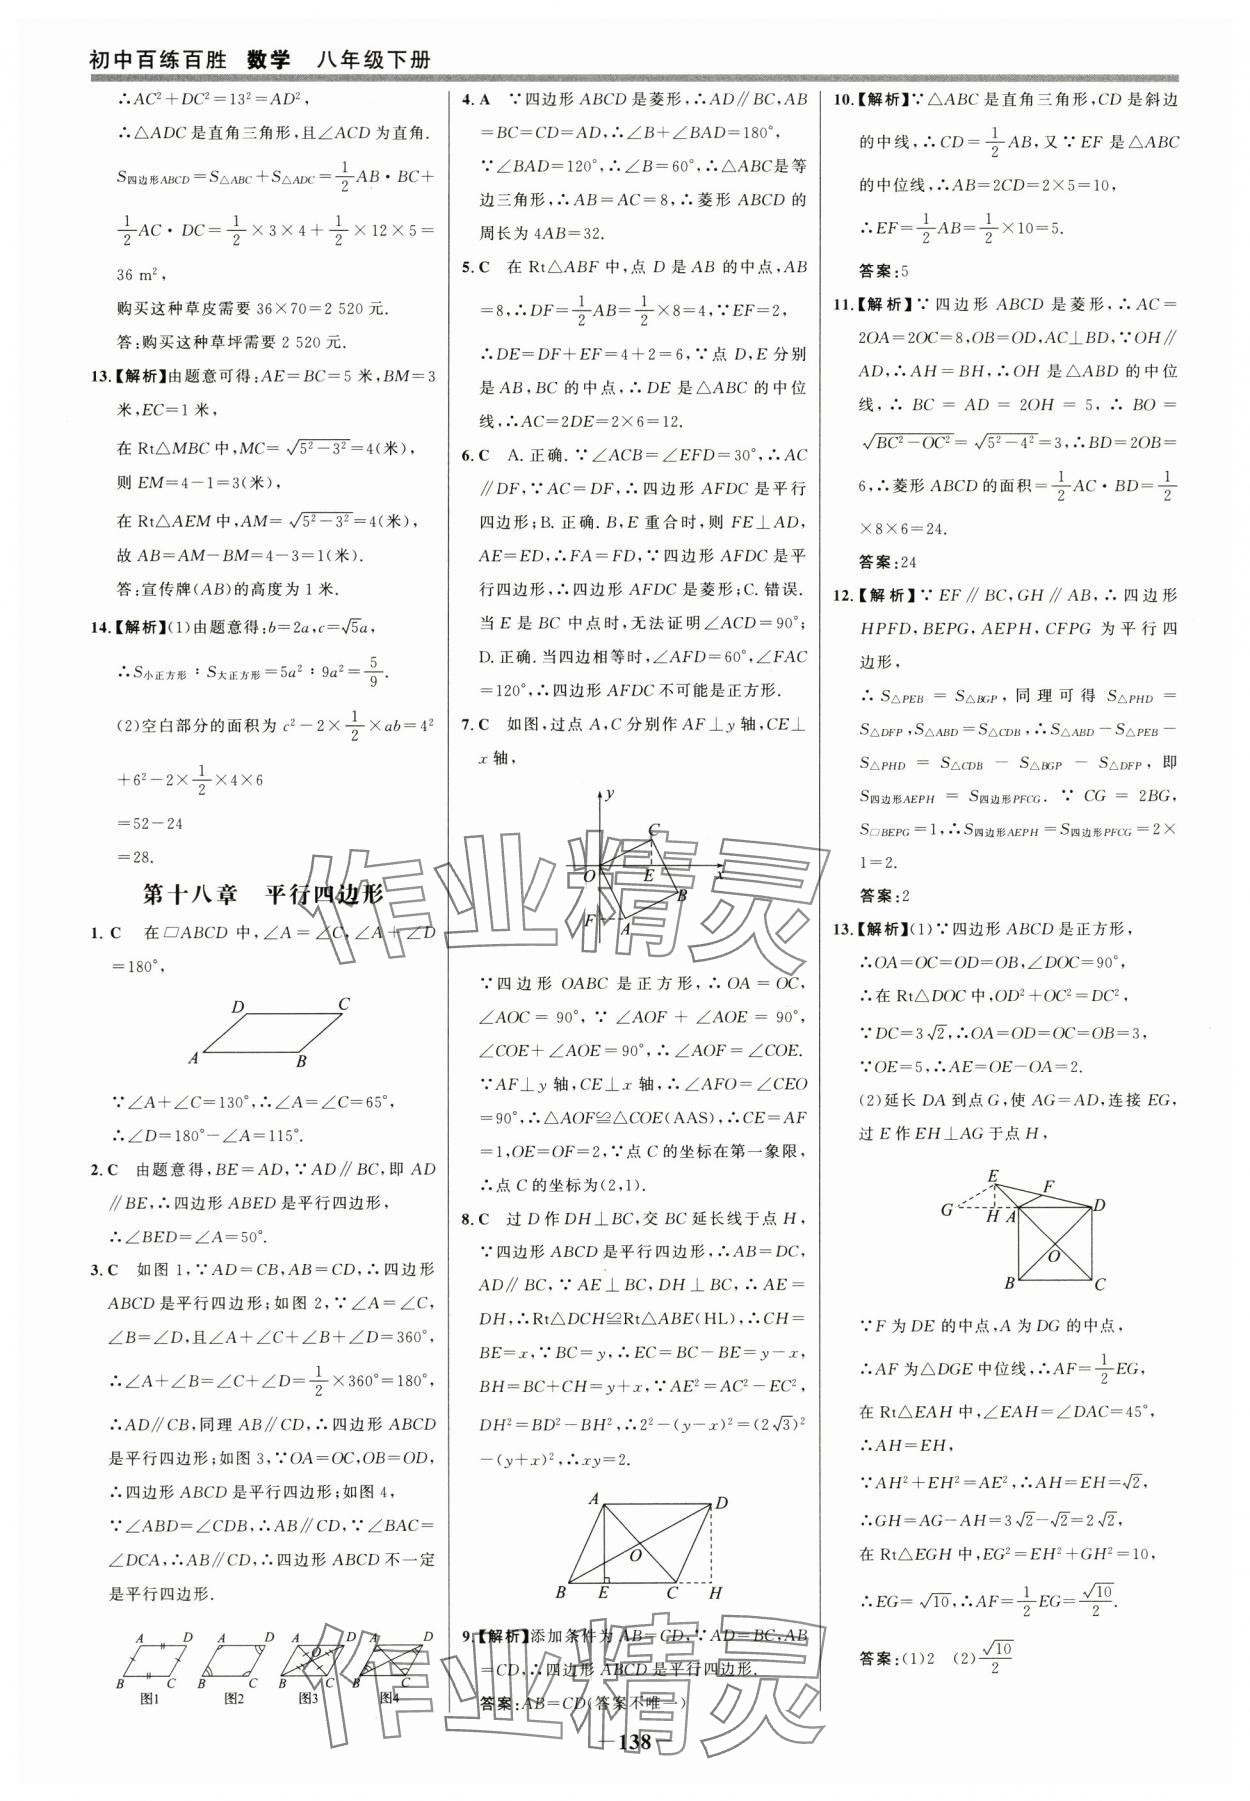 初中百练百胜 数学 八年级下册
∴AC²+DC²=13²=AD²,
∴△ADC是直角三角形,且∠ACD为直角.
S四边形ABCD=S△ABC+S△ADC=1/2AB·BC+
1/2AC·DC=1/2×3×4+1/2×12×5=
36 m²,
购买这种草皮需要36×70=2 520元.
答:购买这种草坪需要2 520元.
13.【解析】由题意可得:AE=BC=5米,BM=3
米,EC=1米,
在Rt△MBC中,MC=√(5²-3²)=4(米),
则EM=4-1=3(米),
在Rt△AEM中,AM=√(5²-3²)=4(米),
故AB=AM-BM=4-3=1(米).
答:宣传牌(AB)的高度为1米.
14.【解析】(1)由题意得:b=2a,c=√5a,
∴S小正方形∶S大正方形=5a²∶9a²=5/9.
(2)空白部分的面积为c²-2×1/2×ab=4²
+6²-2×1/2×4×6
=52-24
=28.
第十八章 平行四边形
1.C 在▱ABCD中,∠A=∠C,∠A+∠D
=180°,
D C
A B
∵∠A+∠C=130°,∴∠A=∠C=65°,
∴∠D=180°-∠A=115°.
2.C 由题意得,BE=AD,∵AD∥BC,即AD
∥BE,∴四边形ABED是平行四边形,
∴∠BED=∠A=50°.
3.C 如图1,∵AD=CB,AB=CD,∴四边形
ABCD是平行四边形;如图2,∵∠A=∠C,
∠B=∠D,且∠A+∠C+∠B+∠D=360°,
∴∠A+∠B=∠C+∠D=1/2×360°=180°,
∴AD∥CB,同理AB∥CD,∴四边形ABCD
是平行四边形;如图3,∵OA=OC,OB=OD,
∴四边形ABCD是平行四边形;如图4,
∵∠ABD=∠CDB,∴AB∥CD,∵∠BAC=
∠DCA,∴AB∥CD,∴四边形ABCD不一定
是平行四边形.
A D A D A D A D
O
B C B C B C B C
图1 图2 图3 图4
4.A ∵四边形ABCD是菱形,∴AD∥BC,AB
=BC=CD=AD,∴∠B+∠BAD=180°,
∵∠BAD=120°,∴∠B=60°,∴△ABC是等
边三角形,∴AB=AC=8,∴菱形ABCD的
周长为4AB=32.
5.C 在Rt△ABF中,点D是AB的中点,AB
=8,∴DF=1/2AB=1/2×8=4,∵EF=2,
∴DE=DF+EF=4+2=6,∵点D,E分别
是AB,BC的中点,∴DE是△ABC的中位
线,∴AC=2DE=2×6=12.
6.C A.正确.∵∠ACB=∠EFD=30°,∴AC
∥DF,∵AC=DF,∴四边形AFDC是平行
四边形;B.正确.B,E重合时,则FE⊥AD,
AE=ED,∴FA=FD,∵四边形AFDC是平
行四边形,∴四边形AFDC是菱形;C.错误.
当E是BC中点时,无法证明∠ACD=90°;
D.正确.当四边相等时,∠AFD=60°,∠FAC
=120°,∴四边形AFDC不可能是正方形.
7.C 如图,过点A,C分别作AF⊥y轴,CE⊥
x轴,
y
C
O E x
B
F A
∵四边形OABC是正方形,∴OA=OC,
∠AOC=90°,∵∠AOF+∠AOE=90°,
∠COE+∠AOE=90°,∴∠AOF=∠COE.
∵AF⊥y轴,CE⊥x轴,∴∠AFO=∠CEO
=90°,∴△AOF≌△COE(AAS),∴CE=AF
=1,OE=OF=2,∵点C的坐标在第一象限,
∴点C的坐标为(2,1).
8.C 过D作DH⊥BC,交BC延长线于点H,
∵四边形ABCD是平行四边形,∴AB=DC,
AD∥BC,∵AE⊥BC,DH⊥BC,∴AE=
DH,∴Rt△DCH≌Rt△ABE(HL),∴CH=
BE=x,∵BC=y,∴EC=BC-BE=y-x,
BH=BC+CH=y+x,∵AE²=AC²-EC²,
DH²=BD²-BH²,∴2²-(y-x)²=(2√3)²
-(y+x)²,∴xy=2.
A D
O
B E C H
9.【解析】添加条件为AB=CD,∵AD=BC,AB
=CD,∴四边形ABCD是平行四边形.
答案:AB=CD(答案不唯一)
10.【解析】∵△ABC是直角三角形,CD是斜边
的中线,∴CD=1/2AB,又∵EF是△ABC
的中位线,∴AB=2CD=2×5=10,
∴EF=1/2AB=1/2×10=5.
答案:5
11.【解析】∵四边形ABCD是菱形,∴AC=
2OA=2OC=8,OB=OD,AC⊥BD,∵OH∥
AD,∴AH=BH,∴OH是△ABD的中位
线,∴BC=AD=2OH=5,∴BO=
√(BC²-OC²)=√(5²-4²)=3,∴BD=2OB=
6,∴菱形ABCD的面积=1/2AC·BD=1/2
×8×6=24.
答案:24
12.【解析】∵EF∥BC,GH∥AB,∴四边形
HPFD,BEPG,AEPH,CFPG为平行四
边形,
∴S△PEB=S△BGP,同理可得S△PHD=
S△DFP,S△ABD=S△CDB,∴S△ABD-S△PEB-
S△PHD=S△CDB-S△BGP-S△DFP,即
S四边形AEPH=S四边形PFCG.∵CG=2BG,
S▱BEPG=1,∴S四边形AEPH=S四边形PFCG=2×
1=2.
答案:2
13.【解析】(1)∵四边形ABCD是正方形,
∴OA=OC=OD=OB,∠DOC=90°,
∴在Rt△DOC中,OD²+OC²=DC²,
∵DC=3√2,∴OA=OD=OC=OB=3,
∵OE=5,∴AE=OE-OA=2.
(2)延长DA到点G,使AG=AD,连接EG,
过E作EH⊥AG于点H,
E F
G H A D
O
B C
∵F为DE的中点,A为DG的中点,
∴AF为△DGE中位线,∴AF=1/2EG,
在Rt△EAH中,∠EAH=∠DAC=45°,
∴AH=EH,
∵AH²+EH²=AE²,∴AH=EH=√2,
∴GH=AG-AH=3√2-√2=2√2,
在Rt△EGH中,EG²=EH²+GH²=10,
∴EG=√10,∴AF=1/2EG=√10/2.
答案:(1)2 (2)√10/2
作业精灵
作业精灵
—138—